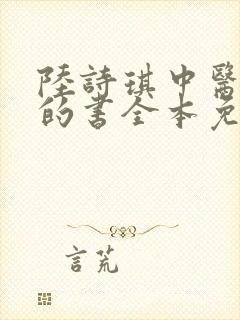 陸詩琪中醫
的書全本免
言荒